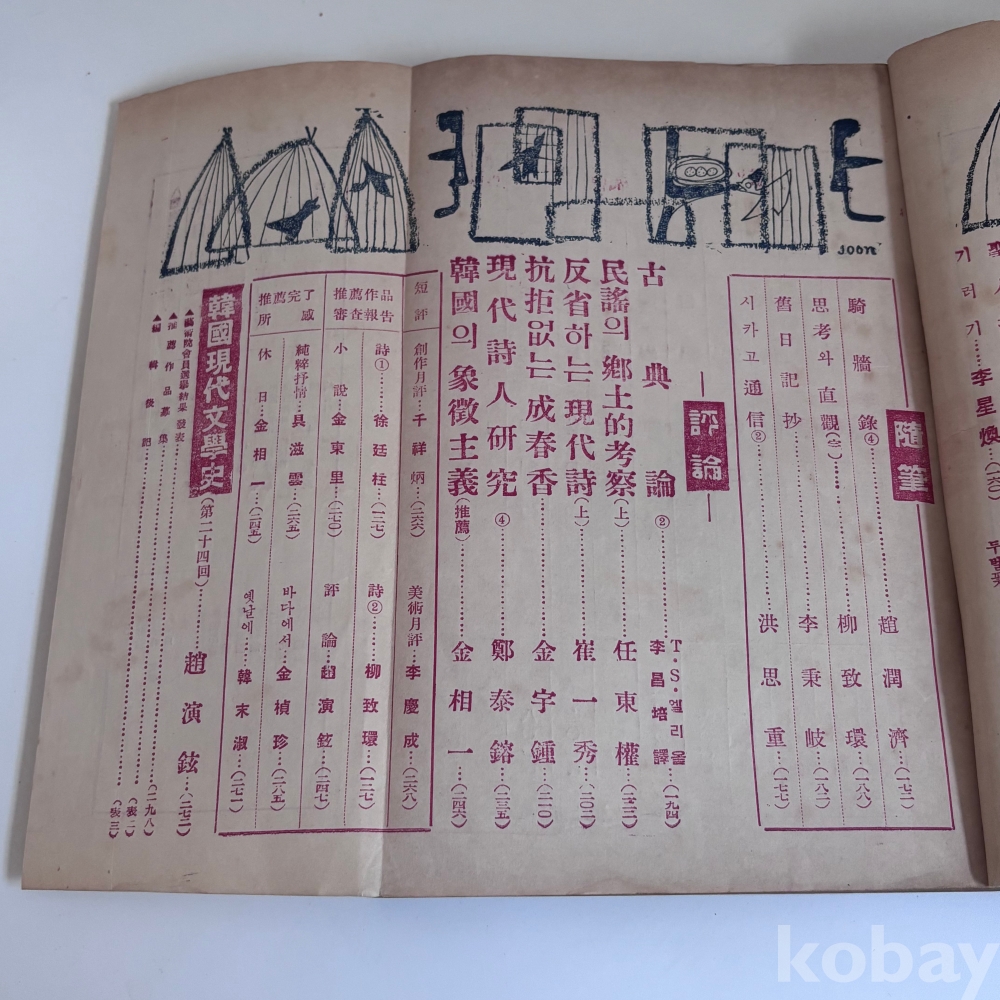 李星煥
soon
隨筆
騎牆錄④……趙潤濟…(一七二)
思考와 直觀(二)……柳致環…(一八八)
舊日記抄……李秉岐…(一八二)
시카고通信②……洪思重…(一七七)
評論
古典論②……T·S·엘리올 李昌培 譯…(一九四)
民謠의 鄕土的考察(上)……任東權…(二三二)
反省하는 現代詩(上)……崔一秀…(二〇二)
抗拒없는 成春香……金宇鍾…(二一〇)
現代詩人研究④……鄭泰鎔…(二三五)
韓國의 象徵主義(推薦)……金相一…(二四六)
短評
創作月評…千祥炳…(二六六)
美術月評…李慶成…(二六八)
推薦作品審査報告
詩①……徐廷柱…(一二七)
詩②……柳致環…(一二七)
小說…金東里…(二七〇)
評論…趙演鉉…(二四七)
推薦完了所感
純粹抒情…具滋雲…(二六五)
바다에서…金楨珍…(二八五)
休日…金相一…(二四五)
옛날에…韓末淑…(二七一)
韓國現代文學史(第二十四回)……趙演鉉…(二七三)
▲藝術院會員選擧結果發表……(二九八)
▲推薦作品募集……(表二)
▲編輯後記……(表三)
kobay